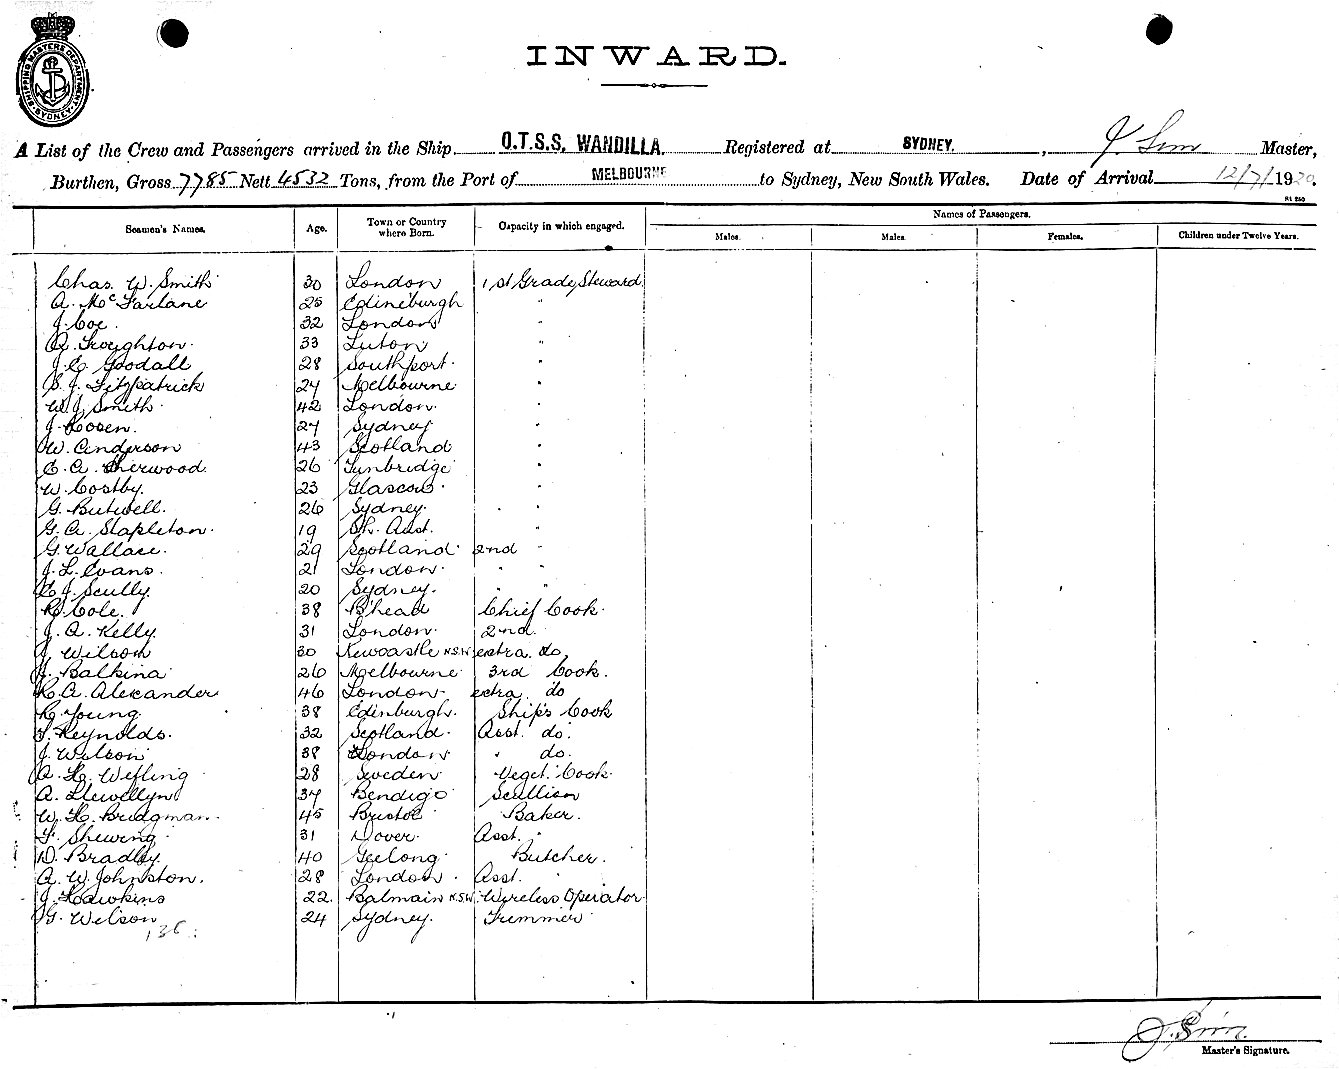 SHIPPING MASTERS DEPARTMENT SYDNEY
INWARD.
A List of the Crew and Passengers arrived in the Ship Q.T.S.S. WANDILLA. Registered at SYDNEY. , J. Sim Master,
Burthen, Gross 7785 Nett 4532 Tons, from the Port of MELBOURNE to Sydney, New South Wales. Date of Arrival 12/7/1920.
Seamen's Names. Age. Town or Country where Born. Capacity in which engaged. Names of Passengers.
Males. Males. Females. Children under Twelve Years.
Chas. W. Smith 30 London 1st Grade Steward
A. McFarlane 25 Edineburgh "
J. Coe. 32 London "
A. Troughton. 33 Luton "
J. C. Goodall 28 Southport. "
S. J. Fitzpatrick 24 Melbourne "
W. J. Smith. 42 London. "
J. 24 Sydney "
W. Anderson 43 Scotland "
C. A. Sherwood. 26 Tunbridge "
W. Costby. 23 Glascow. "
G. Butwell. 26 Sydney. "
G. A. Stapleton. 19 Sth. Aust. "
G. Wallace. 29 Scotland 2nd "
J. L. Evans. 21 London. " "
C. J. Scully. 20 Sydney. " "
R. Cole. 38 B'head Chief Cook.
J. A. Kelly. 31 London. 2nd "
J. Wilson 30 Newcastle N.S.W. extra. do.
J. Balkina 26 Melbourne 3rd Cook.
R. A. Alexander 46 London. extra do
R. Young. 38 Edinburgh. Ship's Cook
T. Reynolds. 32 Scotland. Asst. do.
J. Wilson 38 London " do.
A. H. Wefling 28 Sweden Veget. Cook.
A. Llewellyn 34 Bendigo Scullion
W. H. Bridgman. 45 Bristol Baker.
F. Shewring. 31 Dover. Asst. "
D. Bradley. 40 Geelong. Butcher.
A. W. Johnston. 28 London. Asst. "
J. Hawkins 22. Balmain N.S.W. Wireless Operator
G. Wilson 24 Sydney. Trimmer
J. Sim.
Master's Signature.